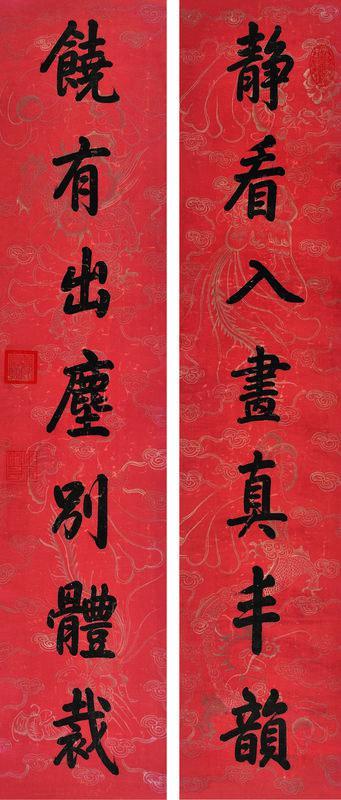 静看入畫真丰韻
饒有出塵别體裁